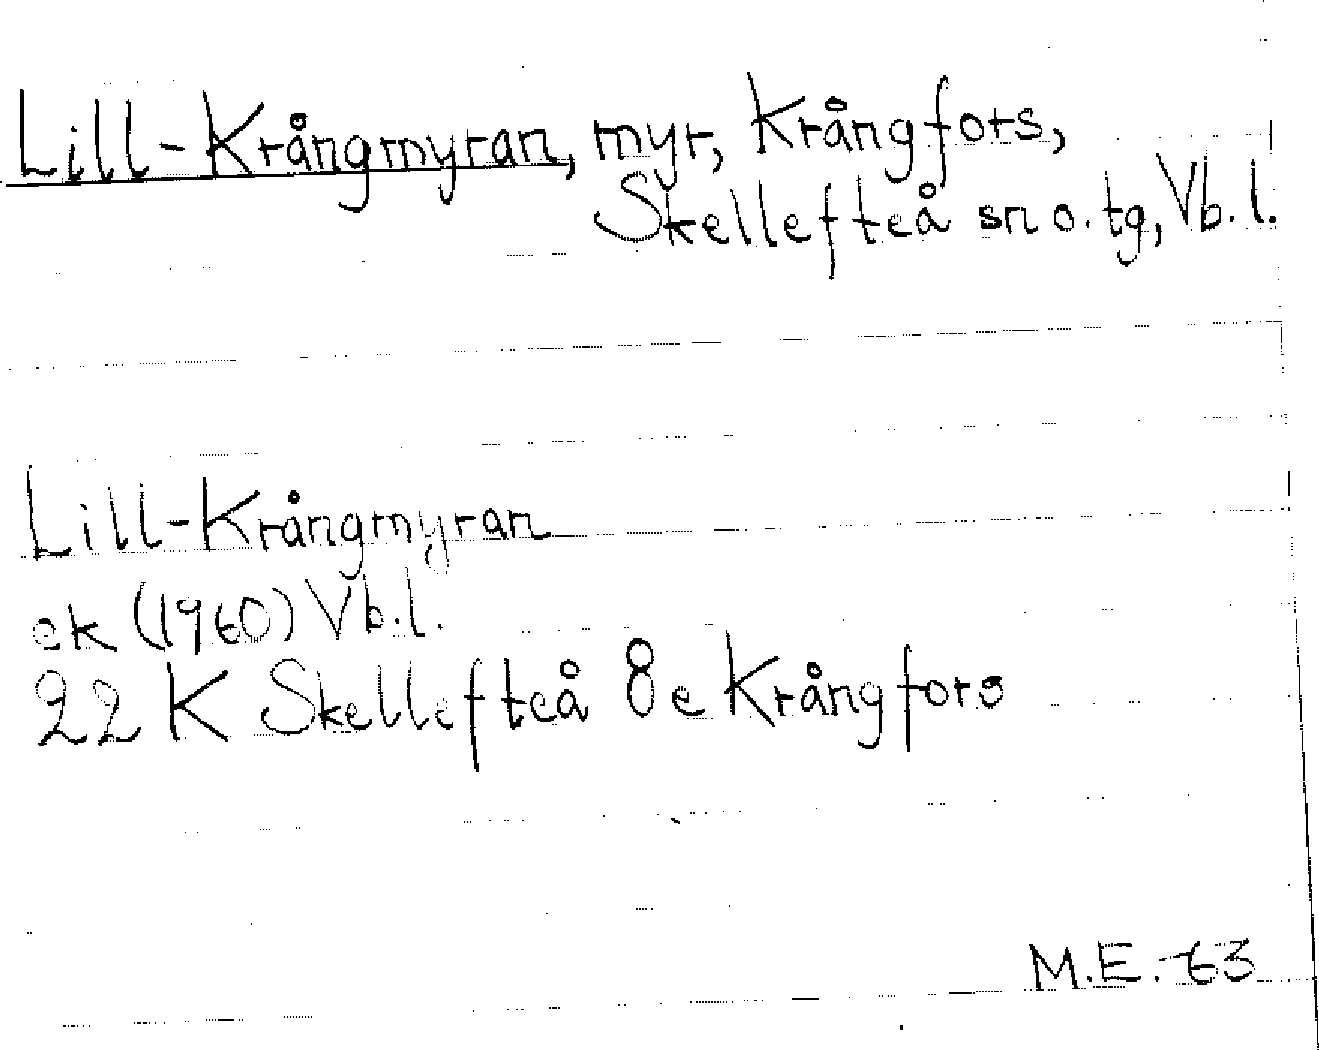 Lill-Krångmyran, myr, Krångfors,
Skellefteå sn o. tg, Vb. l.
Lill-Krångmyran
ek (1960) Vb.l.
22 K Skellefteå 8e Krångfors
M.E. -63